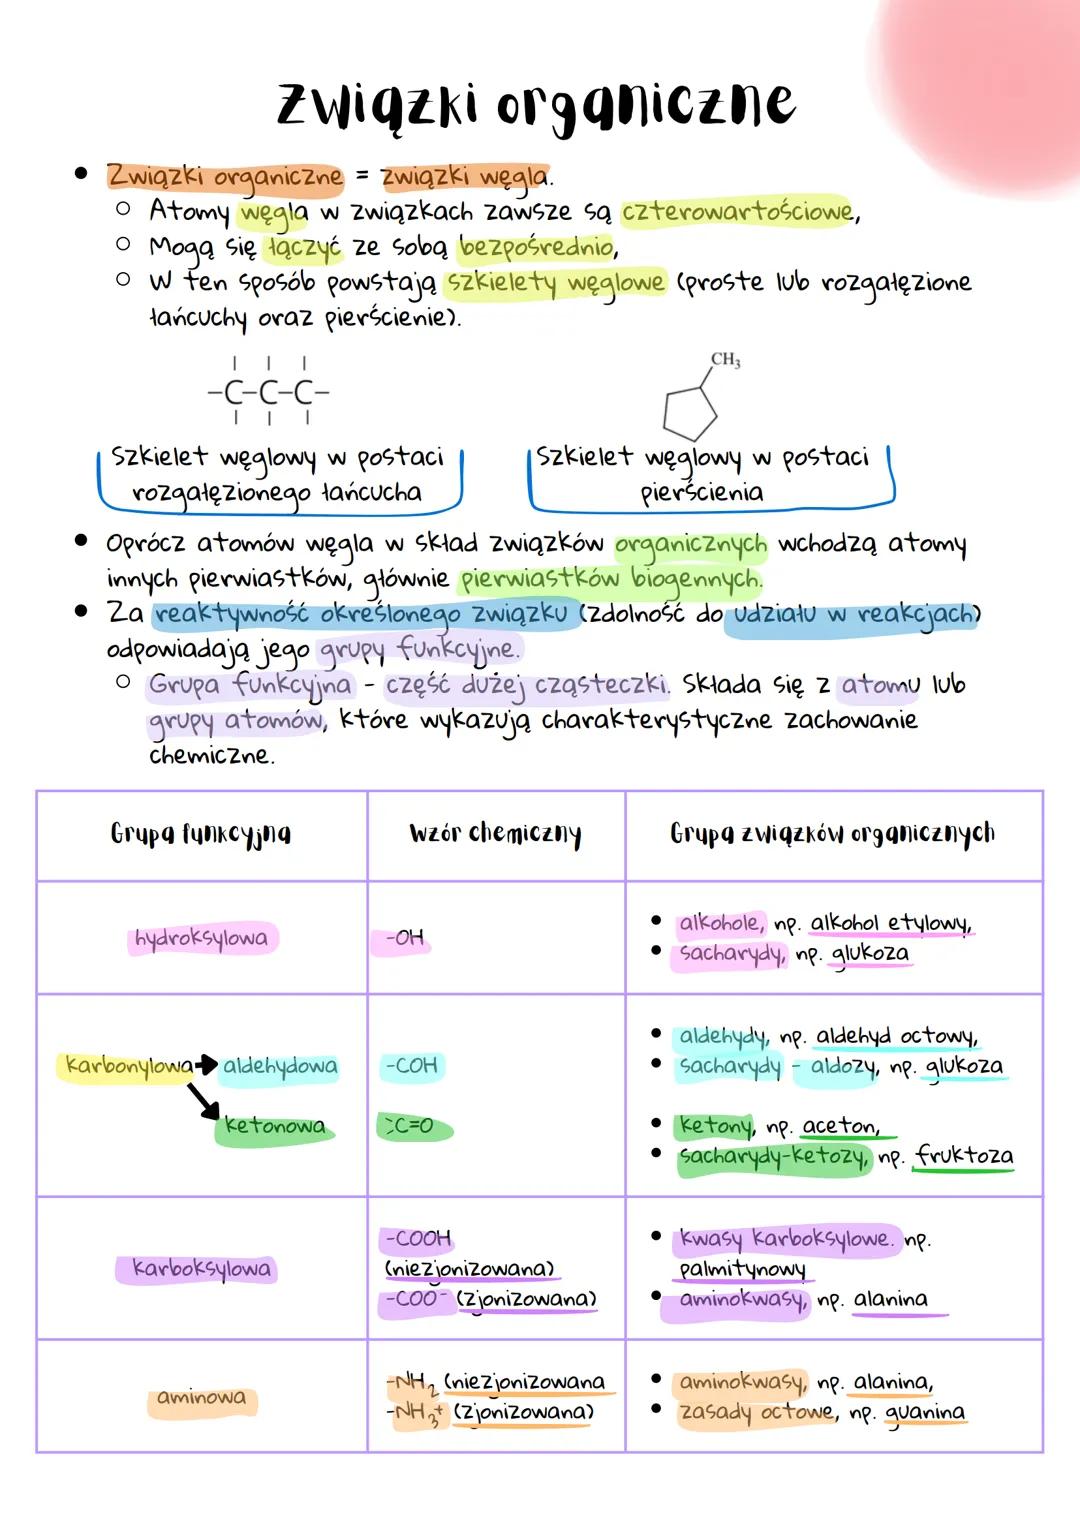 Związki organiczne
• Związki organiczne = związki węgla.
○ Atomy węgla w związkach zawsze są czterowartościowe,
○ Mogą się łączyć ze sobą bezpośrednio,
○ W ten sposób powstają szkielety węglowe (proste lub rozgałęzione
łańcuchy oraz pierścienie).
-C-C-C-
CH₃
Szkielet węglowy w postaci
rozgałęzionego łańcucha
Szkielet węglowy w postaci
pierścienia
• Oprócz atomów węgla w skład związków organicznych wchodzą atomy
innych pierwiastków, głównie pierwiastków biogennych.
• Za reaktywność określonego związku (zdolność do udziału w reakcjach)
odpowiadają jego grupy funkcyjne.
○ Grupa funkcyjna - część dużej cząsteczki. Składa się z atomu lub
grupy atomów, które wykazują charakterystyczne zachowanie
chemiczne.
Grupa funkcyjna
Wzór chemiczny
Grupa związków organicznych
hydroksylowa
-OH
• alkohole, np. alkohol etylowy,
• sacharydy, np. glukoza
karbonylowa → aldehydowa
ketonowa
-COH
>C=O
• aldehydy, np. aldehyd octowy,
• sacharydy - aldozy, np. glukoza
• ketony, np. aceton,
• sacharydy-ketozy, np. fruktoza
karboksylowa
-COOH
(niezjonizowana)
-COO⁻ (zjonizowana)
• kwasy karboksylowe. np.
palmitynowy
• aminokwasy, np. alanina
aminowa
-NH₂ (niezjonizowana
-NH₃⁺ (zjonizowana)
• aminokwasy, np. alanina,
• zasady octowe, np. guanina